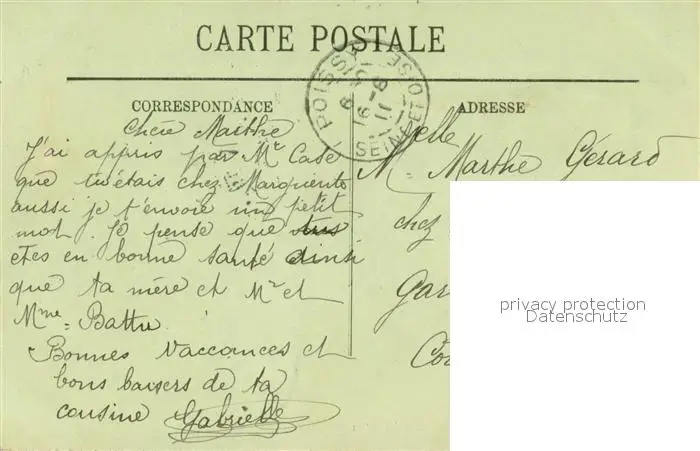 CARTE POSTALE
CORRESPONDANCE
ADRESSE
POISSY
SEINE ET OISE
16-8
11
Chère Marthe
J'ai appris par Mr Case
que tu étais chez Marguerite
aussi je t'envoie un petit
mot. Je pense que tus
etes en bonne santé ainsi
que ta mère et Mr et
Mme Battu
Bonnes vaccances et
bons baisers de ta
cousine Gabrielle
Melle Marthe Gérard
chez
Gar
Co
privacy protection
Datenschutz